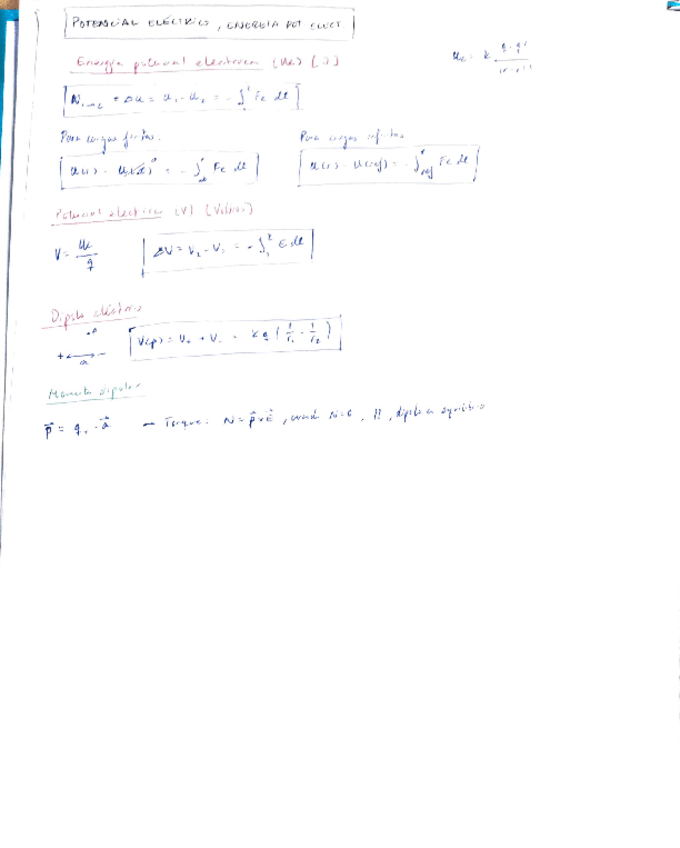 POTENCIAL ELÉCTRICO, ENERGÍA POT ELECT
Energía potencial electrica (Ue) [J]
Ue = k q · q' / |r - r'|
= Δu = u₁ - u₂ = - ∫ Fe dl
Para cargas finitas.
Para cargas infinitas
= - ∫ Fe dl
u(r) - u(ref) = - ∫ Fe dl
Potencial electrico (V) (Voltios)
V = Ue / q
ΔV = V₂ - V₁ = - ∫₁² E dl
Dipolo eléctrico
· P
+ ⟷ -
a
V(p) = V₊ + V₋ = k q ( 1/r₁ - 1/r₂ )
Momento dipolar
p⃗ = q · a⃗ - Torque: N = p⃗ × E⃗, cuando N = 0, dipolo en equilibrio